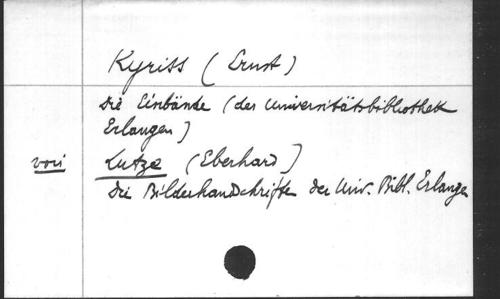 Kyriss (Ernst)
Die Einbände (der Universitätsbibliothek
Erlangen)
voir Lutze (Eberhard)
Die Bilderhandschriften der Univ. Bibl. Erlangen